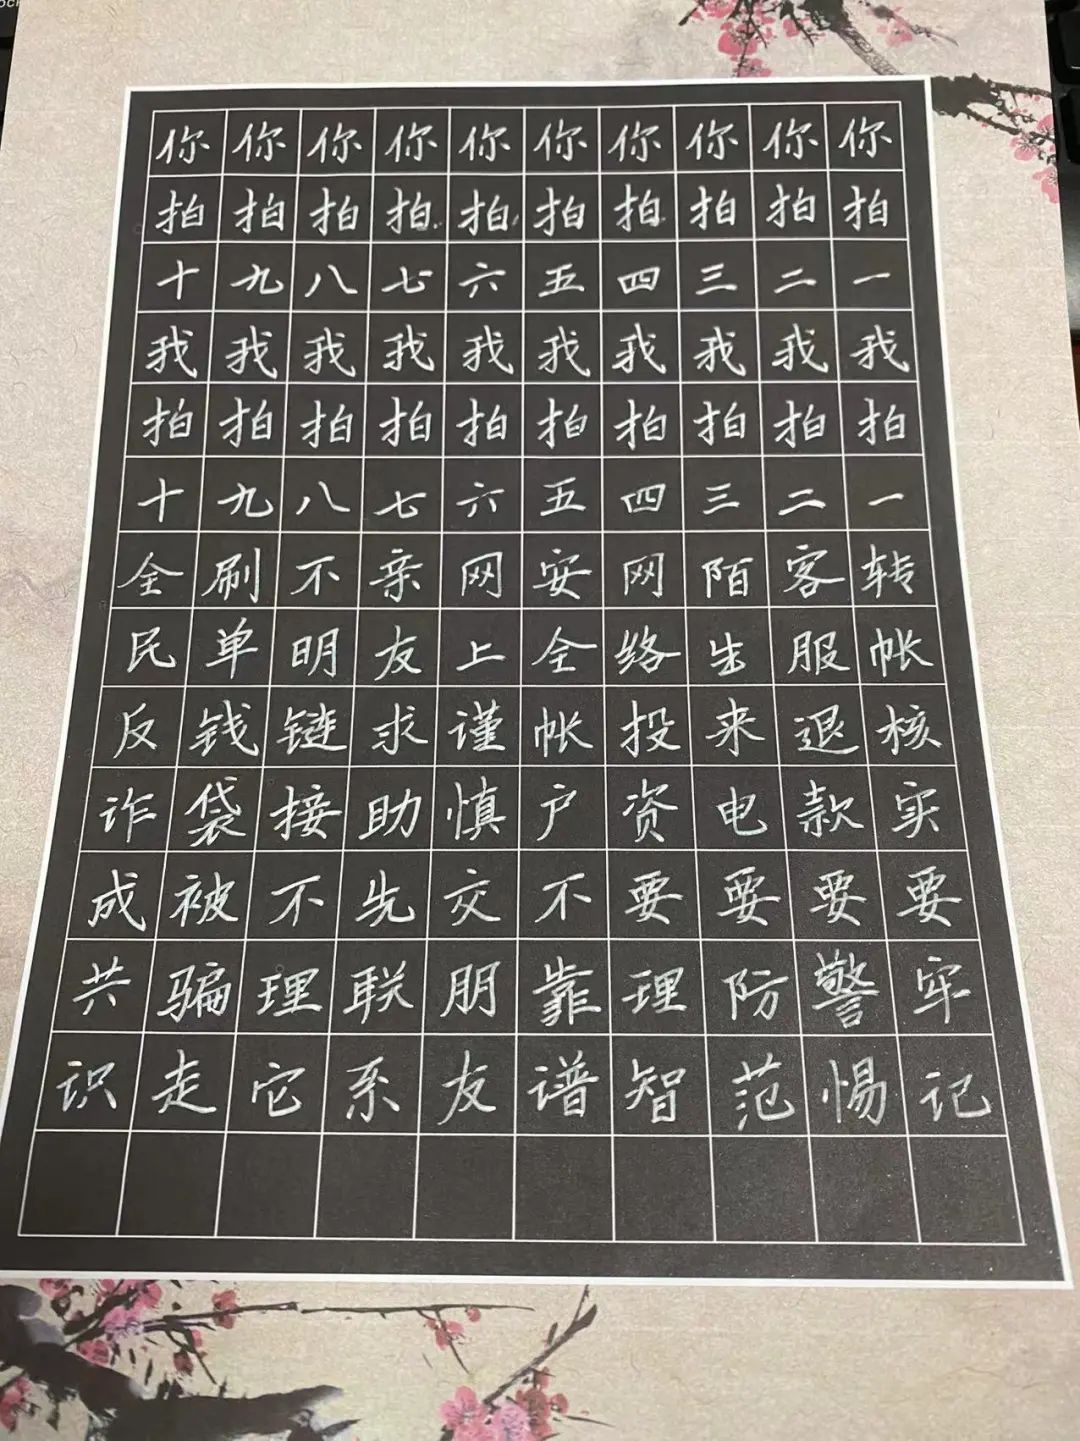 你拍一我拍一转帐核实要牢记
你拍二我拍二客服退款要警惕
你拍三我拍三陌生来电要防范
你拍四我拍四网络投资要理智
你拍五我拍五安全帐户不靠谱
你拍六我拍六网上谨慎交朋友
你拍七我拍七亲友求助先联系
你拍八我拍八不明链接不理它
你拍九我拍九刷单钱袋被骗走
你拍十我拍十全民反诈成共识